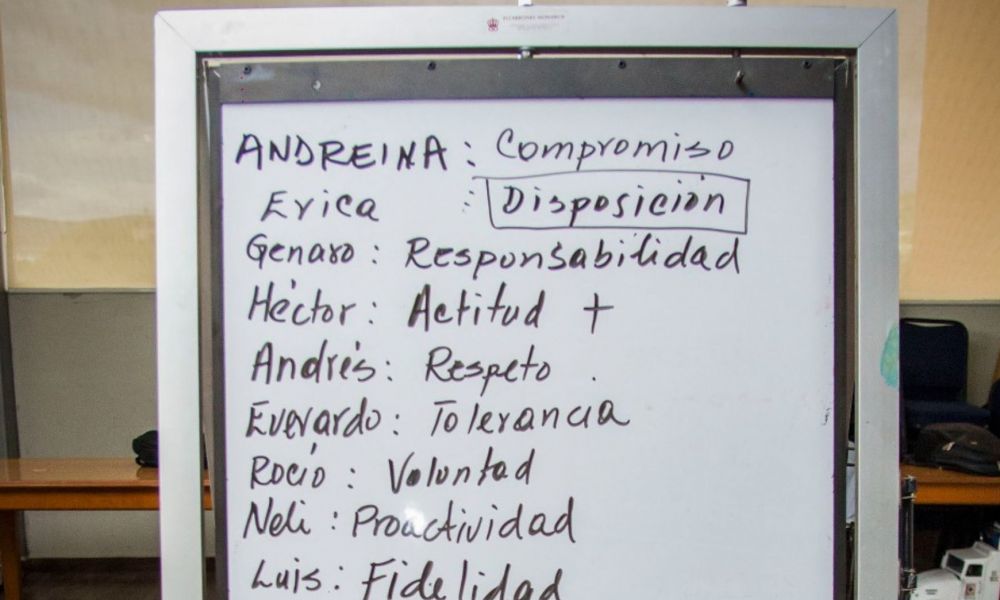 ANDREINA: Compromiso
Erica : Disposición
Genaro: Responsabilidad
Héctor: Actitud +
Andrés: Respeto.
Everardo: Tolerancia
Rocío: Voluntad
Neli: Proactividad
Luis: Fidelidad